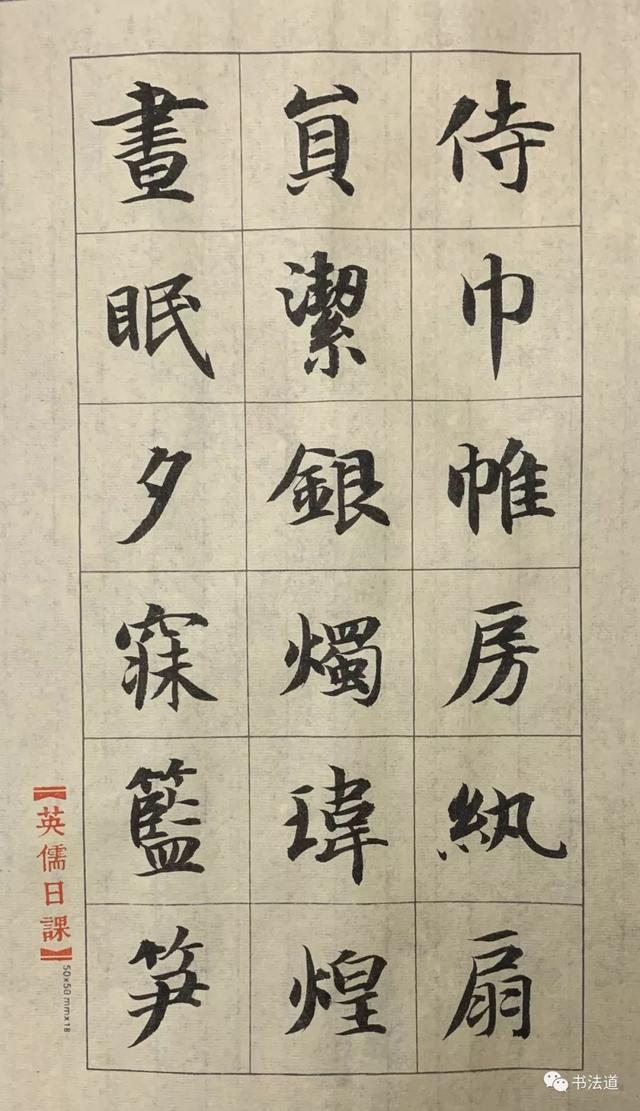 侍巾帷房紈扇
員潔銀燭瑋煌
晝眠夕寐籃笋
【英儒日課】
50x50mmx18
书法道